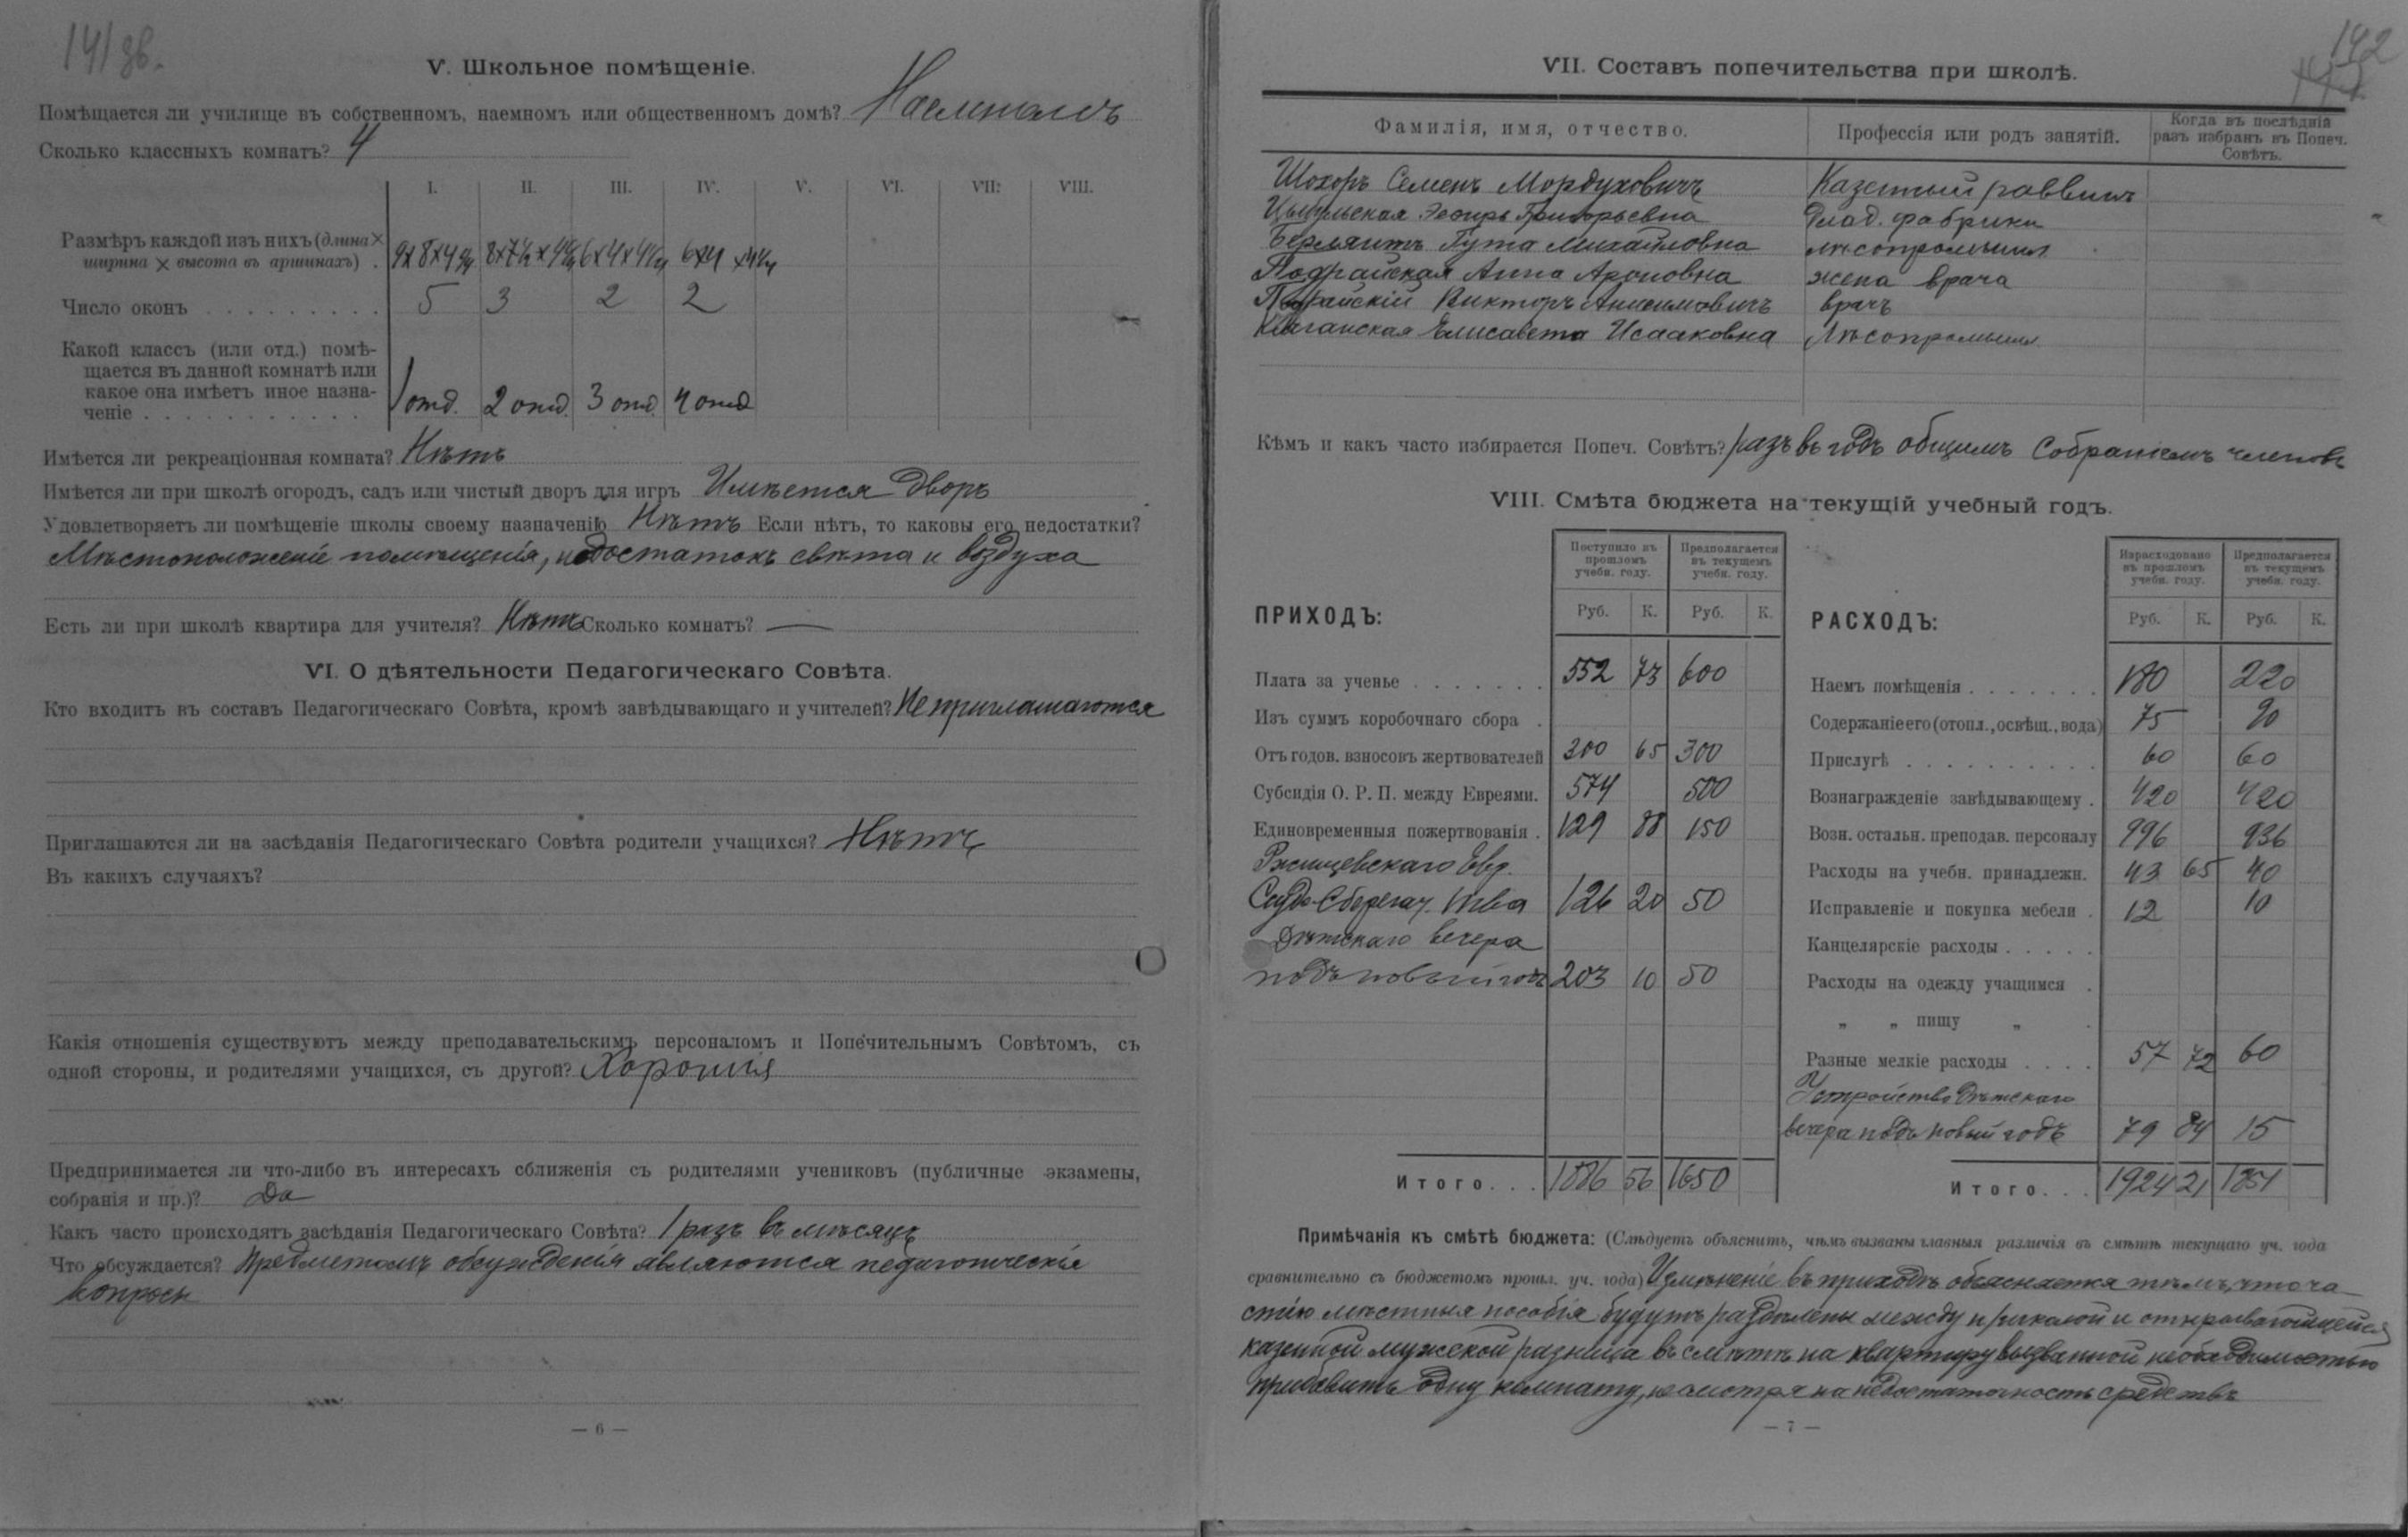 141 об.
V. Школьное помѣщеніе.
Помѣщается ли училище въ собственномъ, наемномъ или общественномъ домѣ? Наемномъ
Сколько классныхъ комнатъ? 4
I. II. III. IV. V. VI. VII. VIII.
Размѣръ каждой изъ нихъ (длина ×
ширина × высота въ аршинахъ) . 9×8×4¾ 8×7½×4¾ 6×4×4¼ 6×4×4¼
Число оконъ . . . . . . . . . 5 3 2 2
Какой классъ (или отд.) помѣ-
щается въ данной комнатѣ или
какое она имѣетъ иное назна-
ченіе . . . . . . . . . . . 1 отд. 2 отд. 3 отд. 4 отд
Имѣется ли рекреаціонная комната? Нѣтъ
Имѣется ли при школѣ огородъ, садъ или чистый дворъ для игръ Имѣется дворъ
Удовлетворяетъ ли помѣщеніе школы своему назначенію Нѣтъ Если нѣтъ, то каковы его недостатки?
Мѣстоположеніе помѣщенія, недостатокъ свѣта и воздуха
Есть ли при школѣ квартира для учителя? Нѣтъ Сколько комнатъ? —
VI. О дѣятельности Педагогическаго Совѣта.
Кто входитъ въ составъ Педагогическаго Совѣта, кромѣ завѣдывающаго и учителей? Не приглашаются
Приглашаются ли на засѣданія Педагогическаго Совѣта родители учащихся? Нѣтъ
Въ какихъ случаяхъ?
Какія отношенія существуютъ между преподавательскимъ персоналомъ и Попечительнымъ Совѣтомъ, съ
одной стороны, и родителями учащихся, съ другой? Хорошія
Предпринимается ли что-либо въ интересахъ сближенія съ родителями учениковъ (публичные экзамены,
собранія и пр.)? Да
Какъ часто происходятъ засѣданія Педагогическаго Совѣта? 1 разъ въ мѣсяцъ
Что обсуждается? Предметомъ обсужденія являются педагогическіе
вопросы
— 6 —
142
VII. Составъ попечительства при школѣ.
Фамилія, имя, отчество. Профессія или родъ занятій. Когда въ послѣдній
разъ избранъ въ Попеч.
Совѣтъ.
Шохоръ Семенъ Мордуховичъ Казенный раввинъ
Эсфирь Григорьевна Влад. фабрики
Гута Михайловна лѣсопромышл.
Анна Ароновна жена врача
Викторъ Анисимовичъ врачъ
Елисавета Исааковна Лѣсопромышл.
Кѣмъ и какъ часто избирается Попеч. Совѣтъ? 1 разъ въ годъ общимъ Собраніемъ членовъ
VIII. Смѣта бюджета на текущій учебный годъ.
ПРИХОДЪ: Поступило въ прошломъ учебн. году. Руб. К. Предполагается въ текущемъ учебн. году. Руб. К.
Плата за ученье . . . . . . . 552 73 600
Изъ суммъ коробочнаго сбора .
Отъ годов. взносовъ жертвователей 300 65 300
Субсидія О. Р. П. между Евреями. 574 500
Единовременныя пожертвованія . 129 88 150
Ржищевскаго Евр.
Ссудо-Сберегат. Т-ва 126 20 50
Дѣтскаго вечера
подъ новый годъ 203 10 50
Итого. . . 1886 56 1650
РАСХОДЪ: Израсходовано въ прошломъ учебн. году. Руб. К. Предполагается въ текущемъ учебн. году. Руб. К.
Наемъ помѣщенія . . . . . . . 180 220
Содержаніе его (отопл., освѣщ., вода) 75 90
Прислугѣ . . . . . . . . . . 60 60
Вознагражденіе завѣдывающему . 420 420
Возн. остальн. преподав. персоналу 996 936
Расходы на учебн. принадлежн. 43 65 40
Исправленіе и покупка мебели . 12 10
Канцелярскіе расходы . . . . .
Расходы на одежду учащимся .
„ „ пищу „ .
Разные мелкіе расходы . . . . 57 72 60
Устройство Дѣтскаго
вечера подъ новый годъ 79 84 15
Итого. . . 1924 21 1851
Примѣчанія къ смѣтѣ бюджета: (Слѣдуетъ объяснить, чѣмъ вызваны главныя различія въ смѣтѣ текущаго уч. года
сравнительно съ бюджетомъ прошл. уч. года) Измѣненіе въ приходѣ объясняется тѣмъ, что ча-
стію мѣстныя пособія будутъ раздѣлены между н/школой и открывающейся
казенной мужской разница въ смѣтѣ на квартиру вызванной необходимостью
прибавить одну комнату, несмотря на недостаточность средствъ
— 7 —